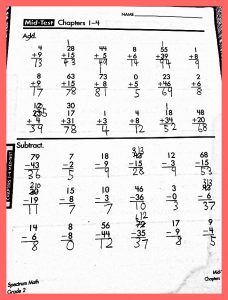 NAME
Mid-Test Chapters 1–4
Add.
4 28 44 8 55 1
+9 +15 +5 +6 +39 +8
13 43 49 14 94 9
8 63 73 0 23 2
+9 +15 +8 +5 +46 +6
17 78 81 5 69 8
30 1 4 18 48
+4 +31 +3 +8 +34 +20
34 4 12 52 68
Subtract.
79 7 18 12 68
-43 -2 -9 -3 -15
36 5 9 9 53
15 10 46 3
-8 -3 -36 -0 -6
7 7 10 3 37
14 8 56 17 9
-6 -8 -44 -35 -9 -4
8 0 12 37 8 5
CHAPTERS 1–4 MID-TEST
Spectrum Math
Grade 2
Mid-
Chapters